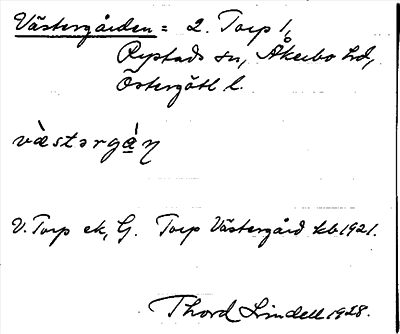 Västergården = 2. Torp 1/6
Rystads sn, Åkerbo hd,
Östergötl l.
västərgạ̊̀n
V. Torp ek, G. Torp Västergård kb 1921.
Thord Lindell 1928.